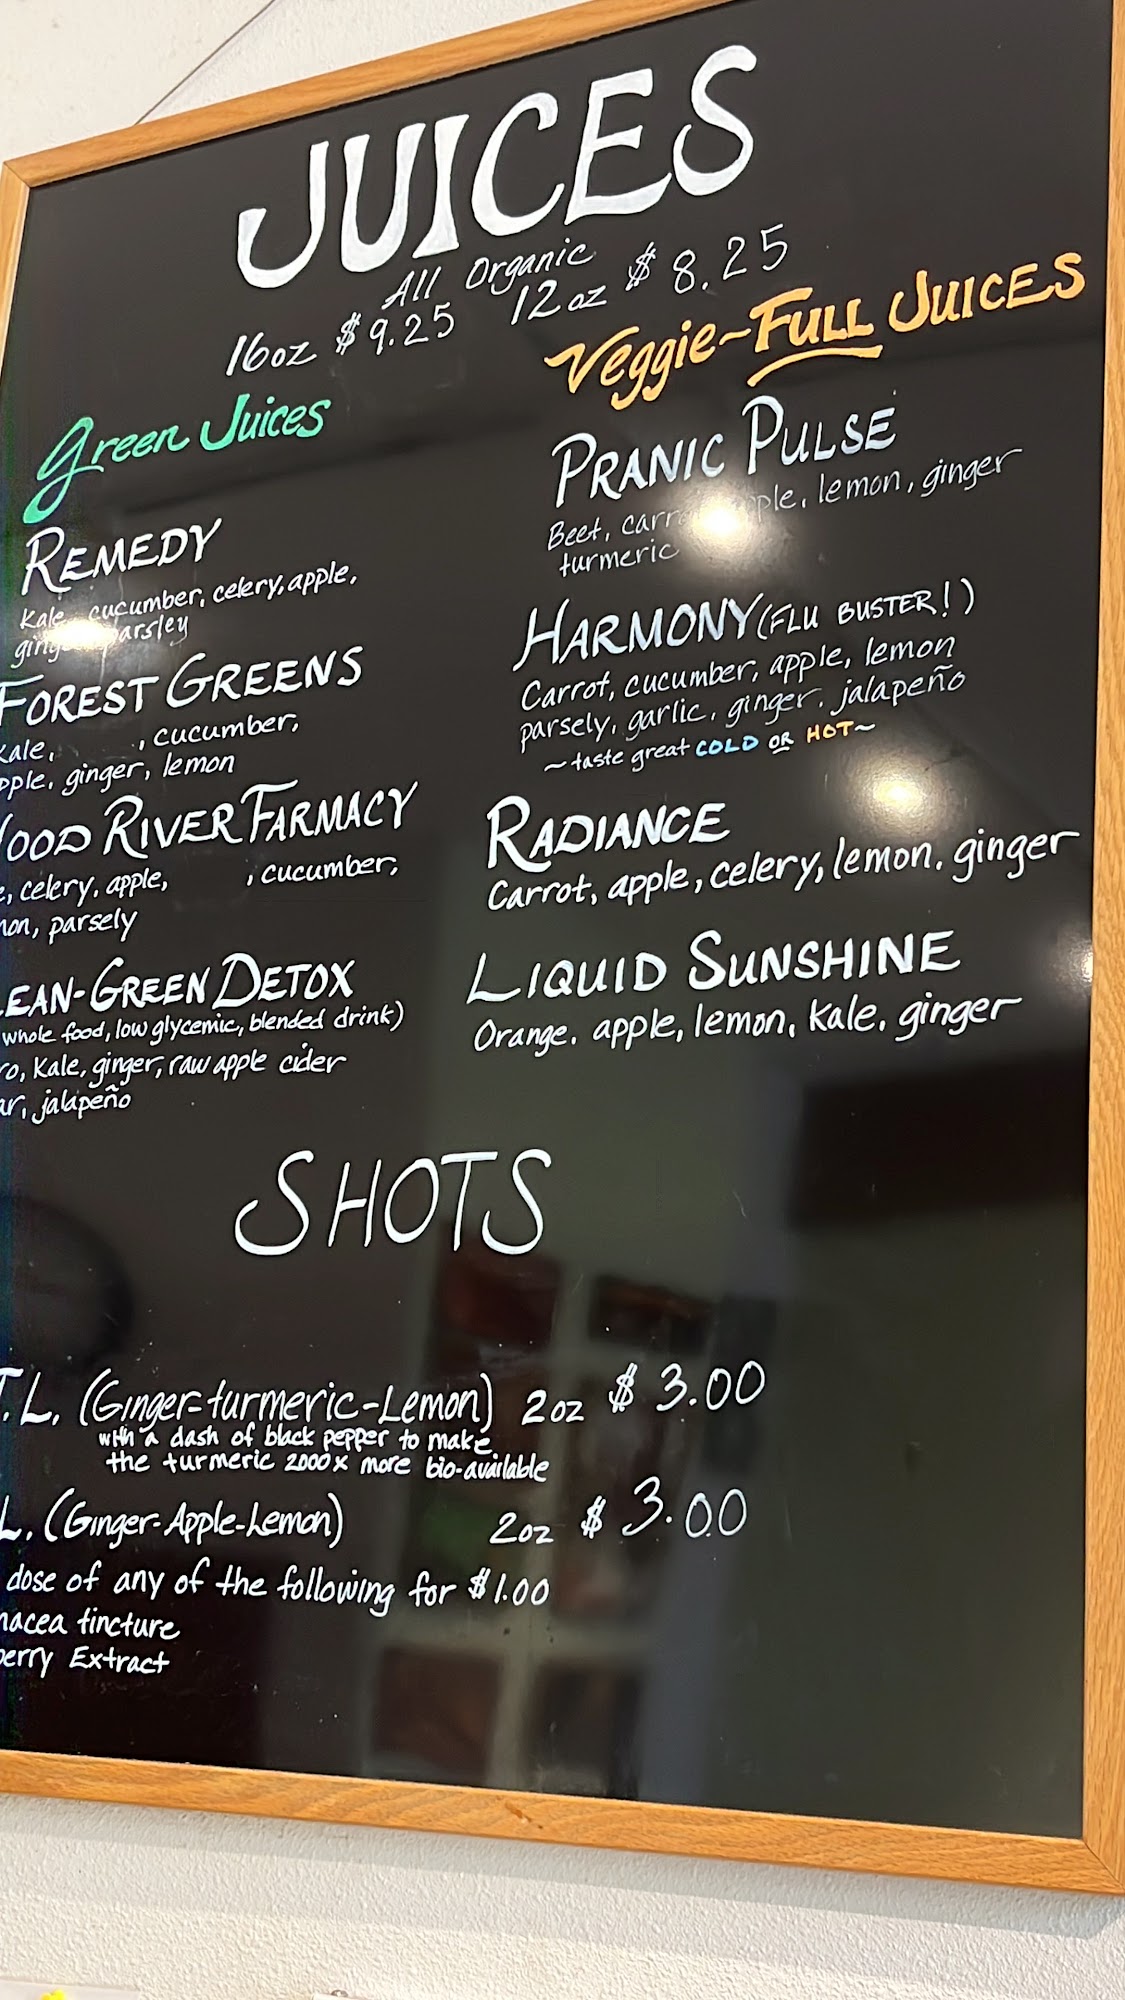 JUICES
All Organic
16oz $9.25 12oz $8.25
Green Juices
REMEDY
Kale, cucumber, celery, apple,
parsley
FOREST GREENS
Kale, , cucumber,
apple, ginger, lemon
WOOD RIVER FARMACY
, celery, apple, , cucumber,
parsely
LEAN-GREEN DETOX
whole food, low glycemic, blended drink)
Kale, ginger, raw apple cider
jalapeño
Veggie-FULL JUICES
PRANIC PULSE
Beet, lemon, ginger
turmeric
HARMONY (FLU BUSTER!)
Carrot, cucumber, apple, lemon
parsely, garlic, ginger, jalapeño
~taste great COLD OR HOT~
RADIANCE
Carrot, apple, celery, lemon, ginger
LIQUID SUNSHINE
Orange, apple, lemon, Kale, ginger
SHOTS
T.L. (Ginger-turmeric-Lemon) 2oz $3.00
with a dash of black pepper to make
the turmeric 2000x more bio-available
L. (Ginger-Apple-Lemon) 2oz $3.00
dose of any of the following for $1.00
tincture
Extract